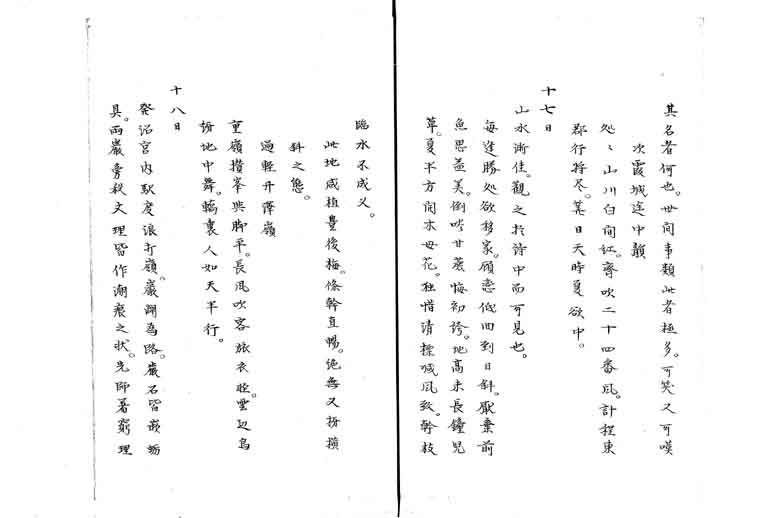 其名者何也。世間事類此者極多。可笑又可嘆
次霞城途中韻
処〻山川白間紅。齊吹二十四番風。計程東
郡行将尽。其日天時夏欲中。
十七日
山水漸佳。觀之於詩中而可見也。
毎逢勝処欲移家。顧恋低回到日斜。厭棄前
魚思益美。倒啖甘蔗悔初誇。地高未長鐘児
草。夏半方開木母花。独惜清標咸風致。幹枝
臨水不成义。
此地咸植豊後梅。條幹直暢。絶無义枒横
斜之態。
過軽井澤嶺
重嶺攢峯与脚平。長風吹客旅衣軽。雲辺鳥
坿地中舞。轎裏人如天半行。
十八日
発沼宮内駅度浪打嶺。巌洞為路。巌石皆嵌蛎
具。両巌旁殺文理皆作潮痕之状。先師著窮理